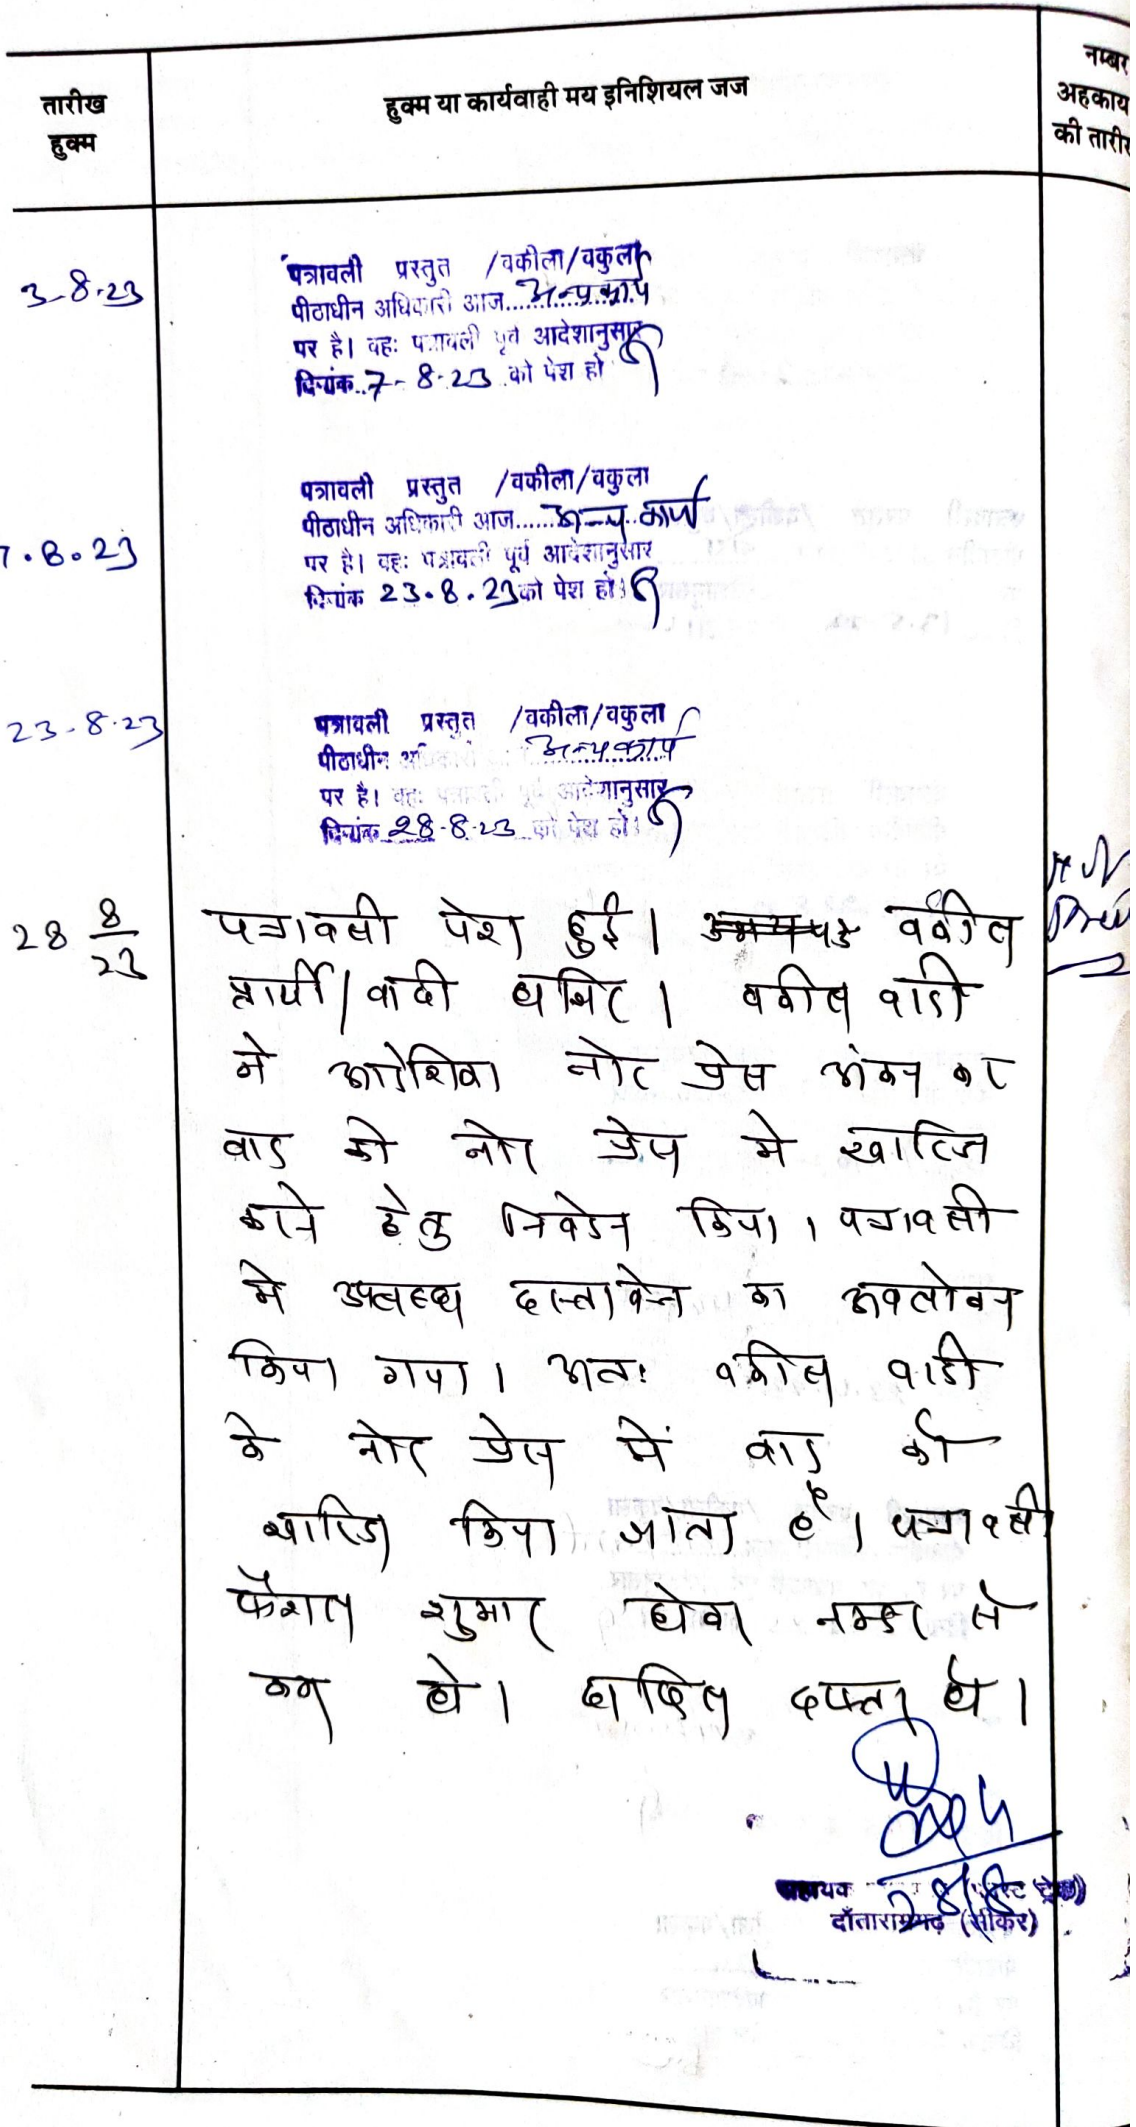 तारीख
हुक्म
हुक्म या कार्यवाही मय इनिशियल जज
नम्बर
अहकाम
की तारीख
3-8-23
पत्रावली प्रस्तुत /वकीला/वकुला
पीठाधीन अधिकारी आज......अन्य कार्य
पर है। वहः पत्रावली पूर्व आदेशानुसार
दिनांक..7-8-23..को पेश हो
7.8.23
पत्रावली प्रस्तुत /वकीला/वकुला
पीठाधीन अधिकारी आज......अन्य कार्य
पर है। वहः पत्रावली पूर्व आदेशानुसार
दिनांक 23.8.23 को पेश हो।
23-8-23
पत्रावली प्रस्तुत /वकीला/वकुला
पीठाधीन अधिकारी अन्य कार्य
पर है। वहः पत्रावली पूर्व आदेशानुसार
दिनांक 28-8-23 को पेश हो।
28 8/23
पत्रावली पेश हुई। वकील
प्रार्थी/वादी हाजिर। वकील वादी
ने आदेशिका नोट प्रेस अंकन कर
वाद को नोट प्रेस मे खारिज
करने हेतु निवेदन किया। पत्रावली
मे उपलब्ध दस्तावेज का अवलोकन
किया गया। अतः वकील वादी
के नोट प्रेस में वाद को
खारिज किया जाता है। पत्रावली
फैशल शुमार होकर नम्बर से
कम हो। दाखिल दफ्तर हो।
28/8
सहायक
दाँतारामगढ़ (सीकर)